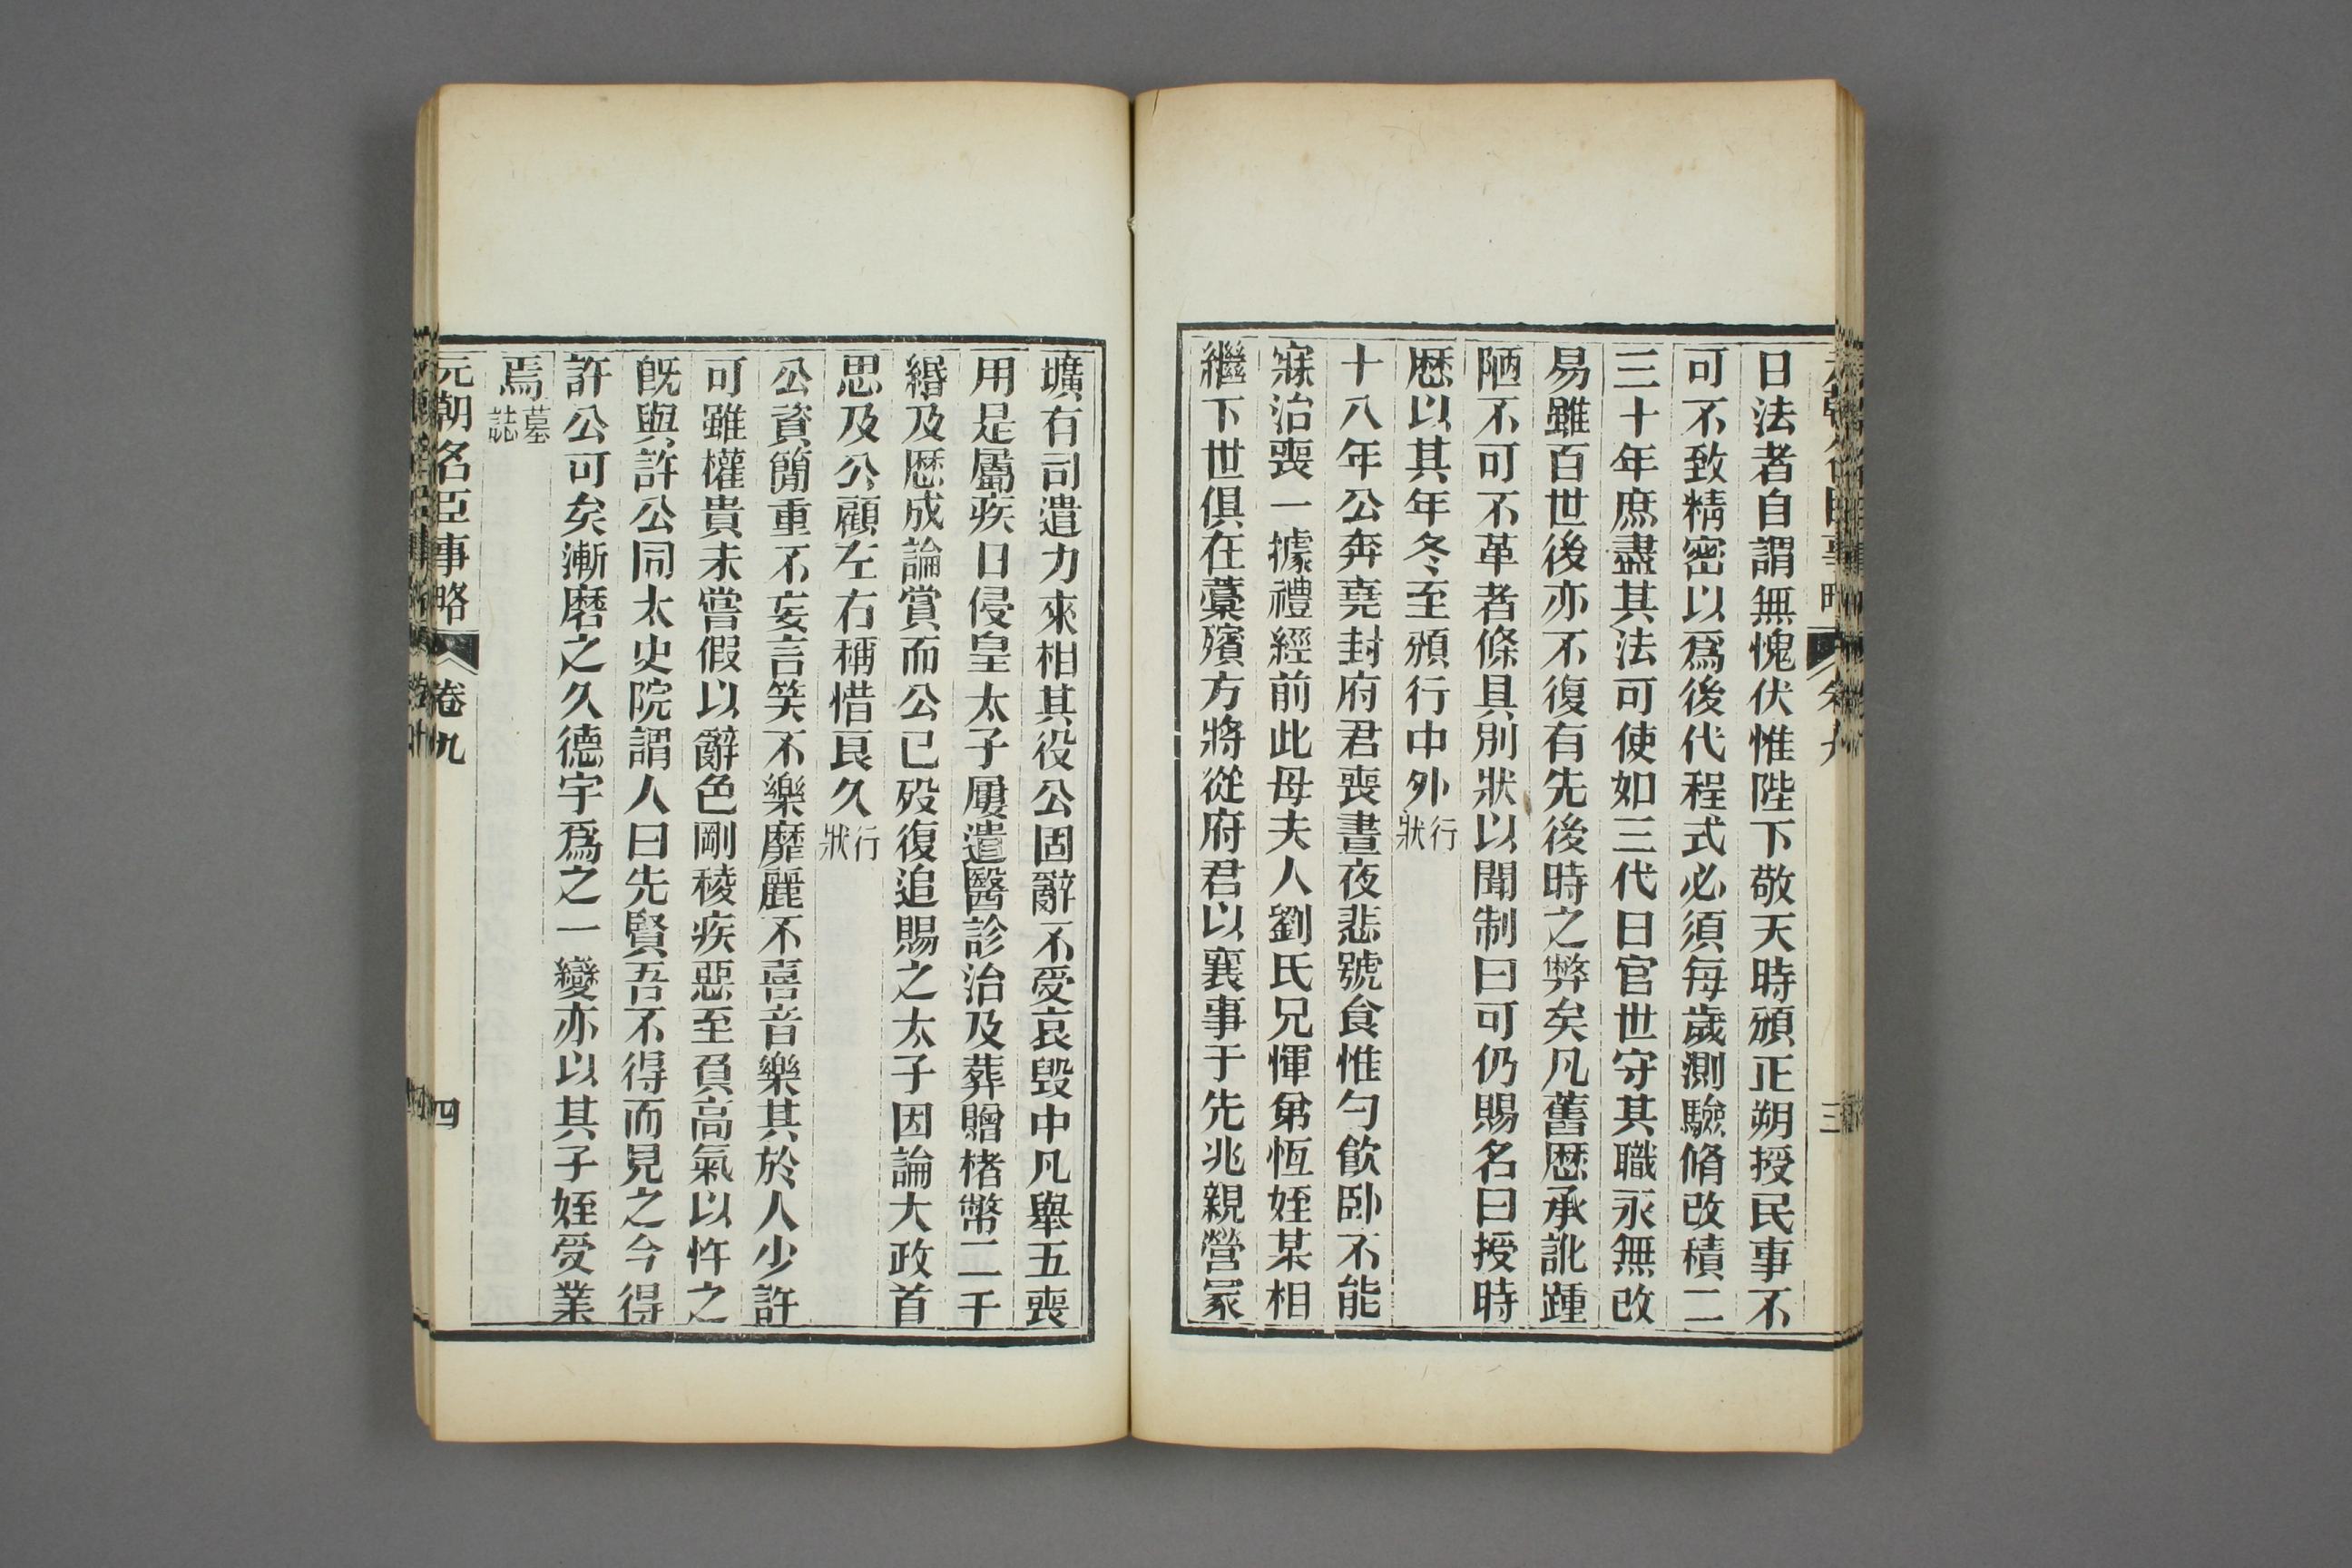 日法者自謂無愧伏惟陛下敬天時頒正朔授民事不
可不致精密以爲後代程式必須每歲測驗脩改積二
三十年庶盡其法可使如三代日官世守其職永無改
易雖百世後亦不復有先後時之弊矣凡舊厯承訛踵
陋不可不革者條具別狀以聞制曰可仍賜名曰授時
厯以其年冬至頒行中外行狀
十八年公奔堯封府君喪晝夜悲號食惟勺飲卧不能
寐治喪一據禮經前此母夫人劉氏兄惲弟恆姪某相
繼下世俱在藁殯方將從府君以襄事于先兆親營冢
壙有司遣力來相其役公固辭不受哀毀中凡舉五喪
用是屬疾日侵皇太子屢遣醫診治及葬贈楮幣二千
緡及厯成論賞而公已歿復追賜之太子因論大政首
思及公顧左右稱惜良久行狀
公資簡重不妄言笑不樂靡麗不喜音樂其於人少許
可雖權貴未嘗假以辭色剛稜疾惡至負高氣以忤之
旣與許公同太史院謂人曰先賢吾不得而見之今得
許公可矣漸磨之久德宇爲之一變亦以其子姪受業
焉墓誌
元朝名臣事略 卷九 四